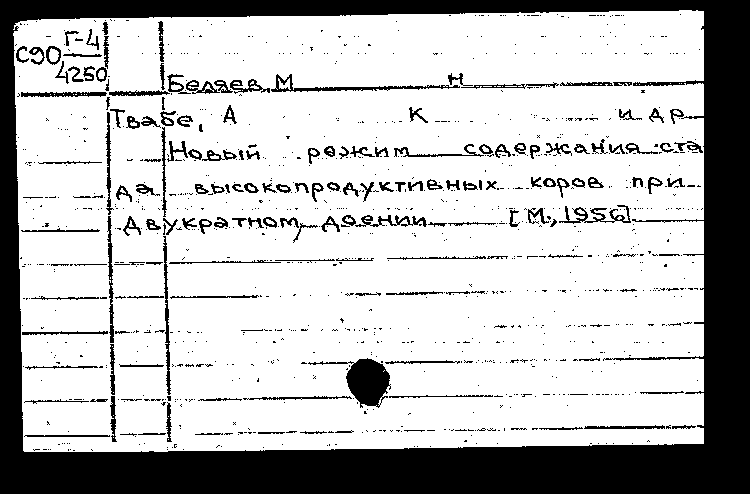 Г-4
С90
4250
Беляев, М Н
Твабе, А К и др
Новый режим содержания ста
да высокопродуктивных коров при
двукратном доении [М., 1956]